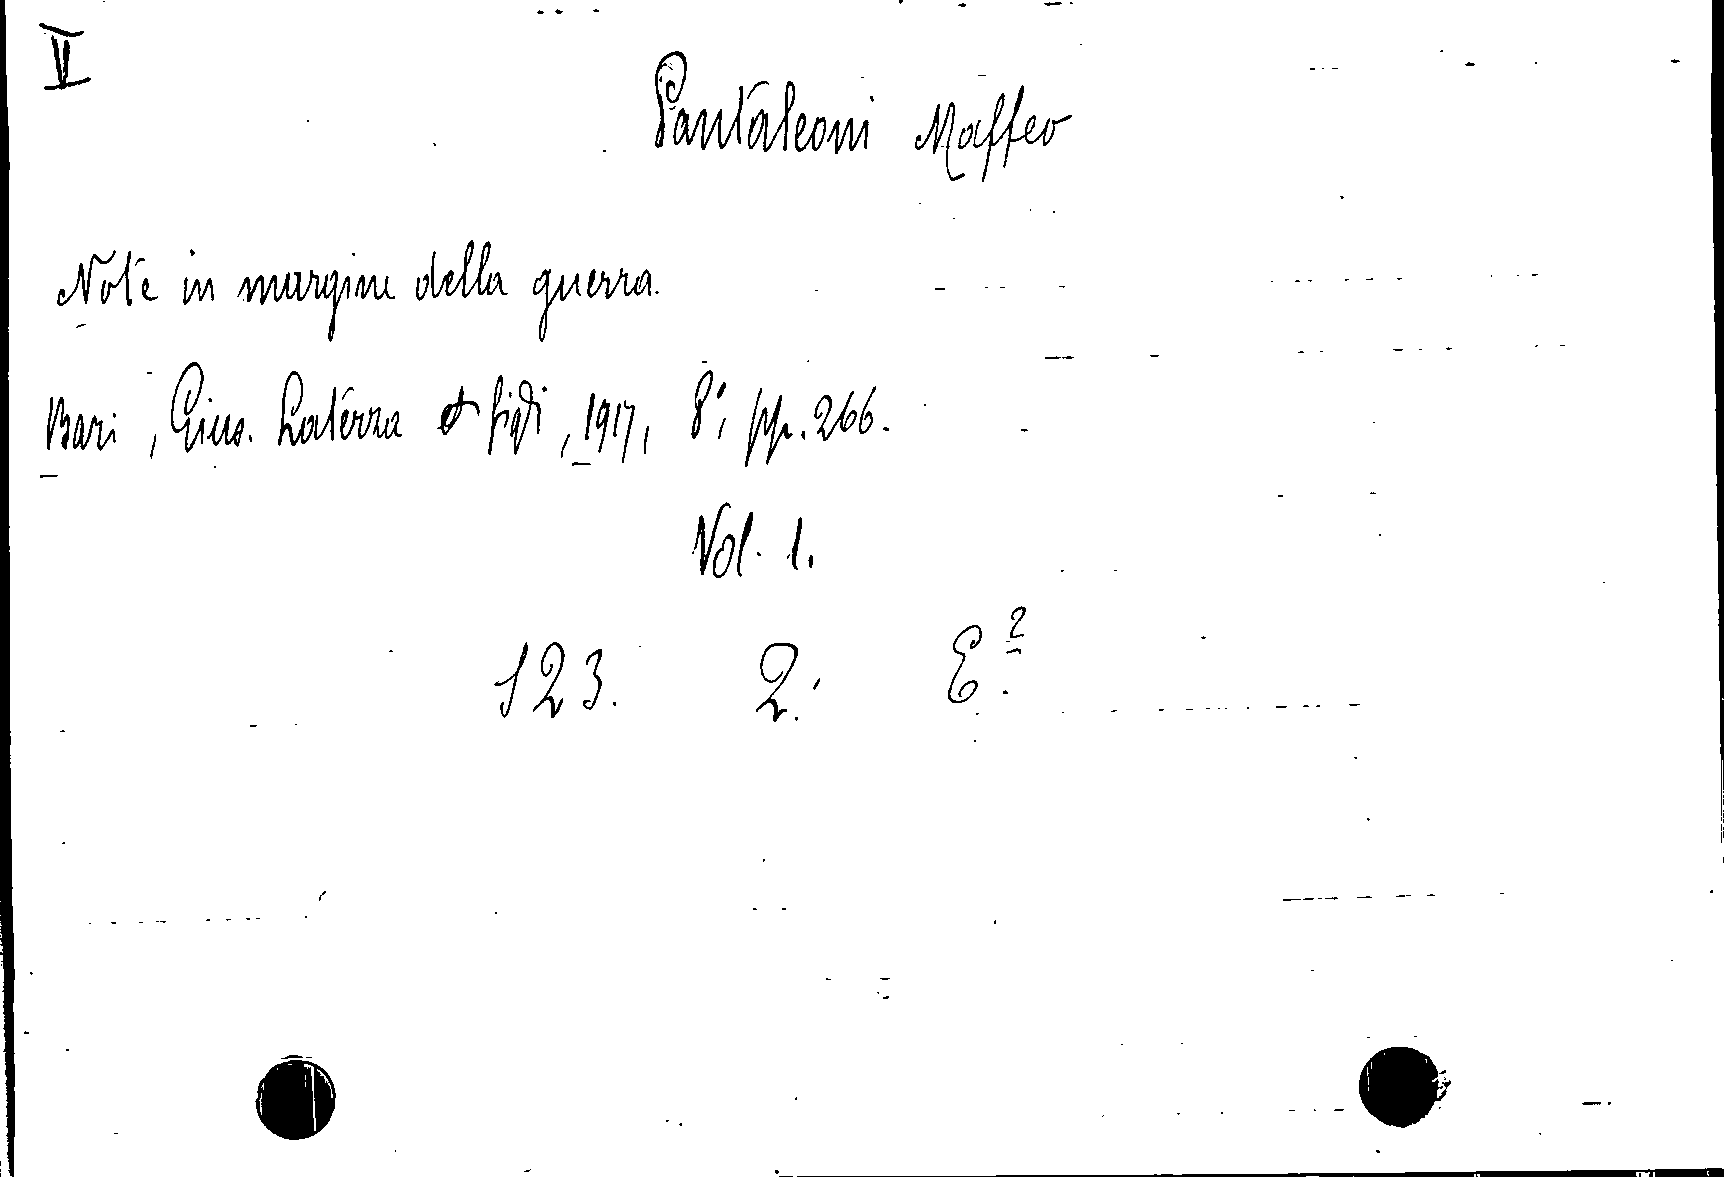 V
Pantaleoni Maffeo
Note in margine della guerra.
Bari, Gius. Laterza et figli, 1917, 8°, pp. 266.
Vol. 1.
123. 2. E.²